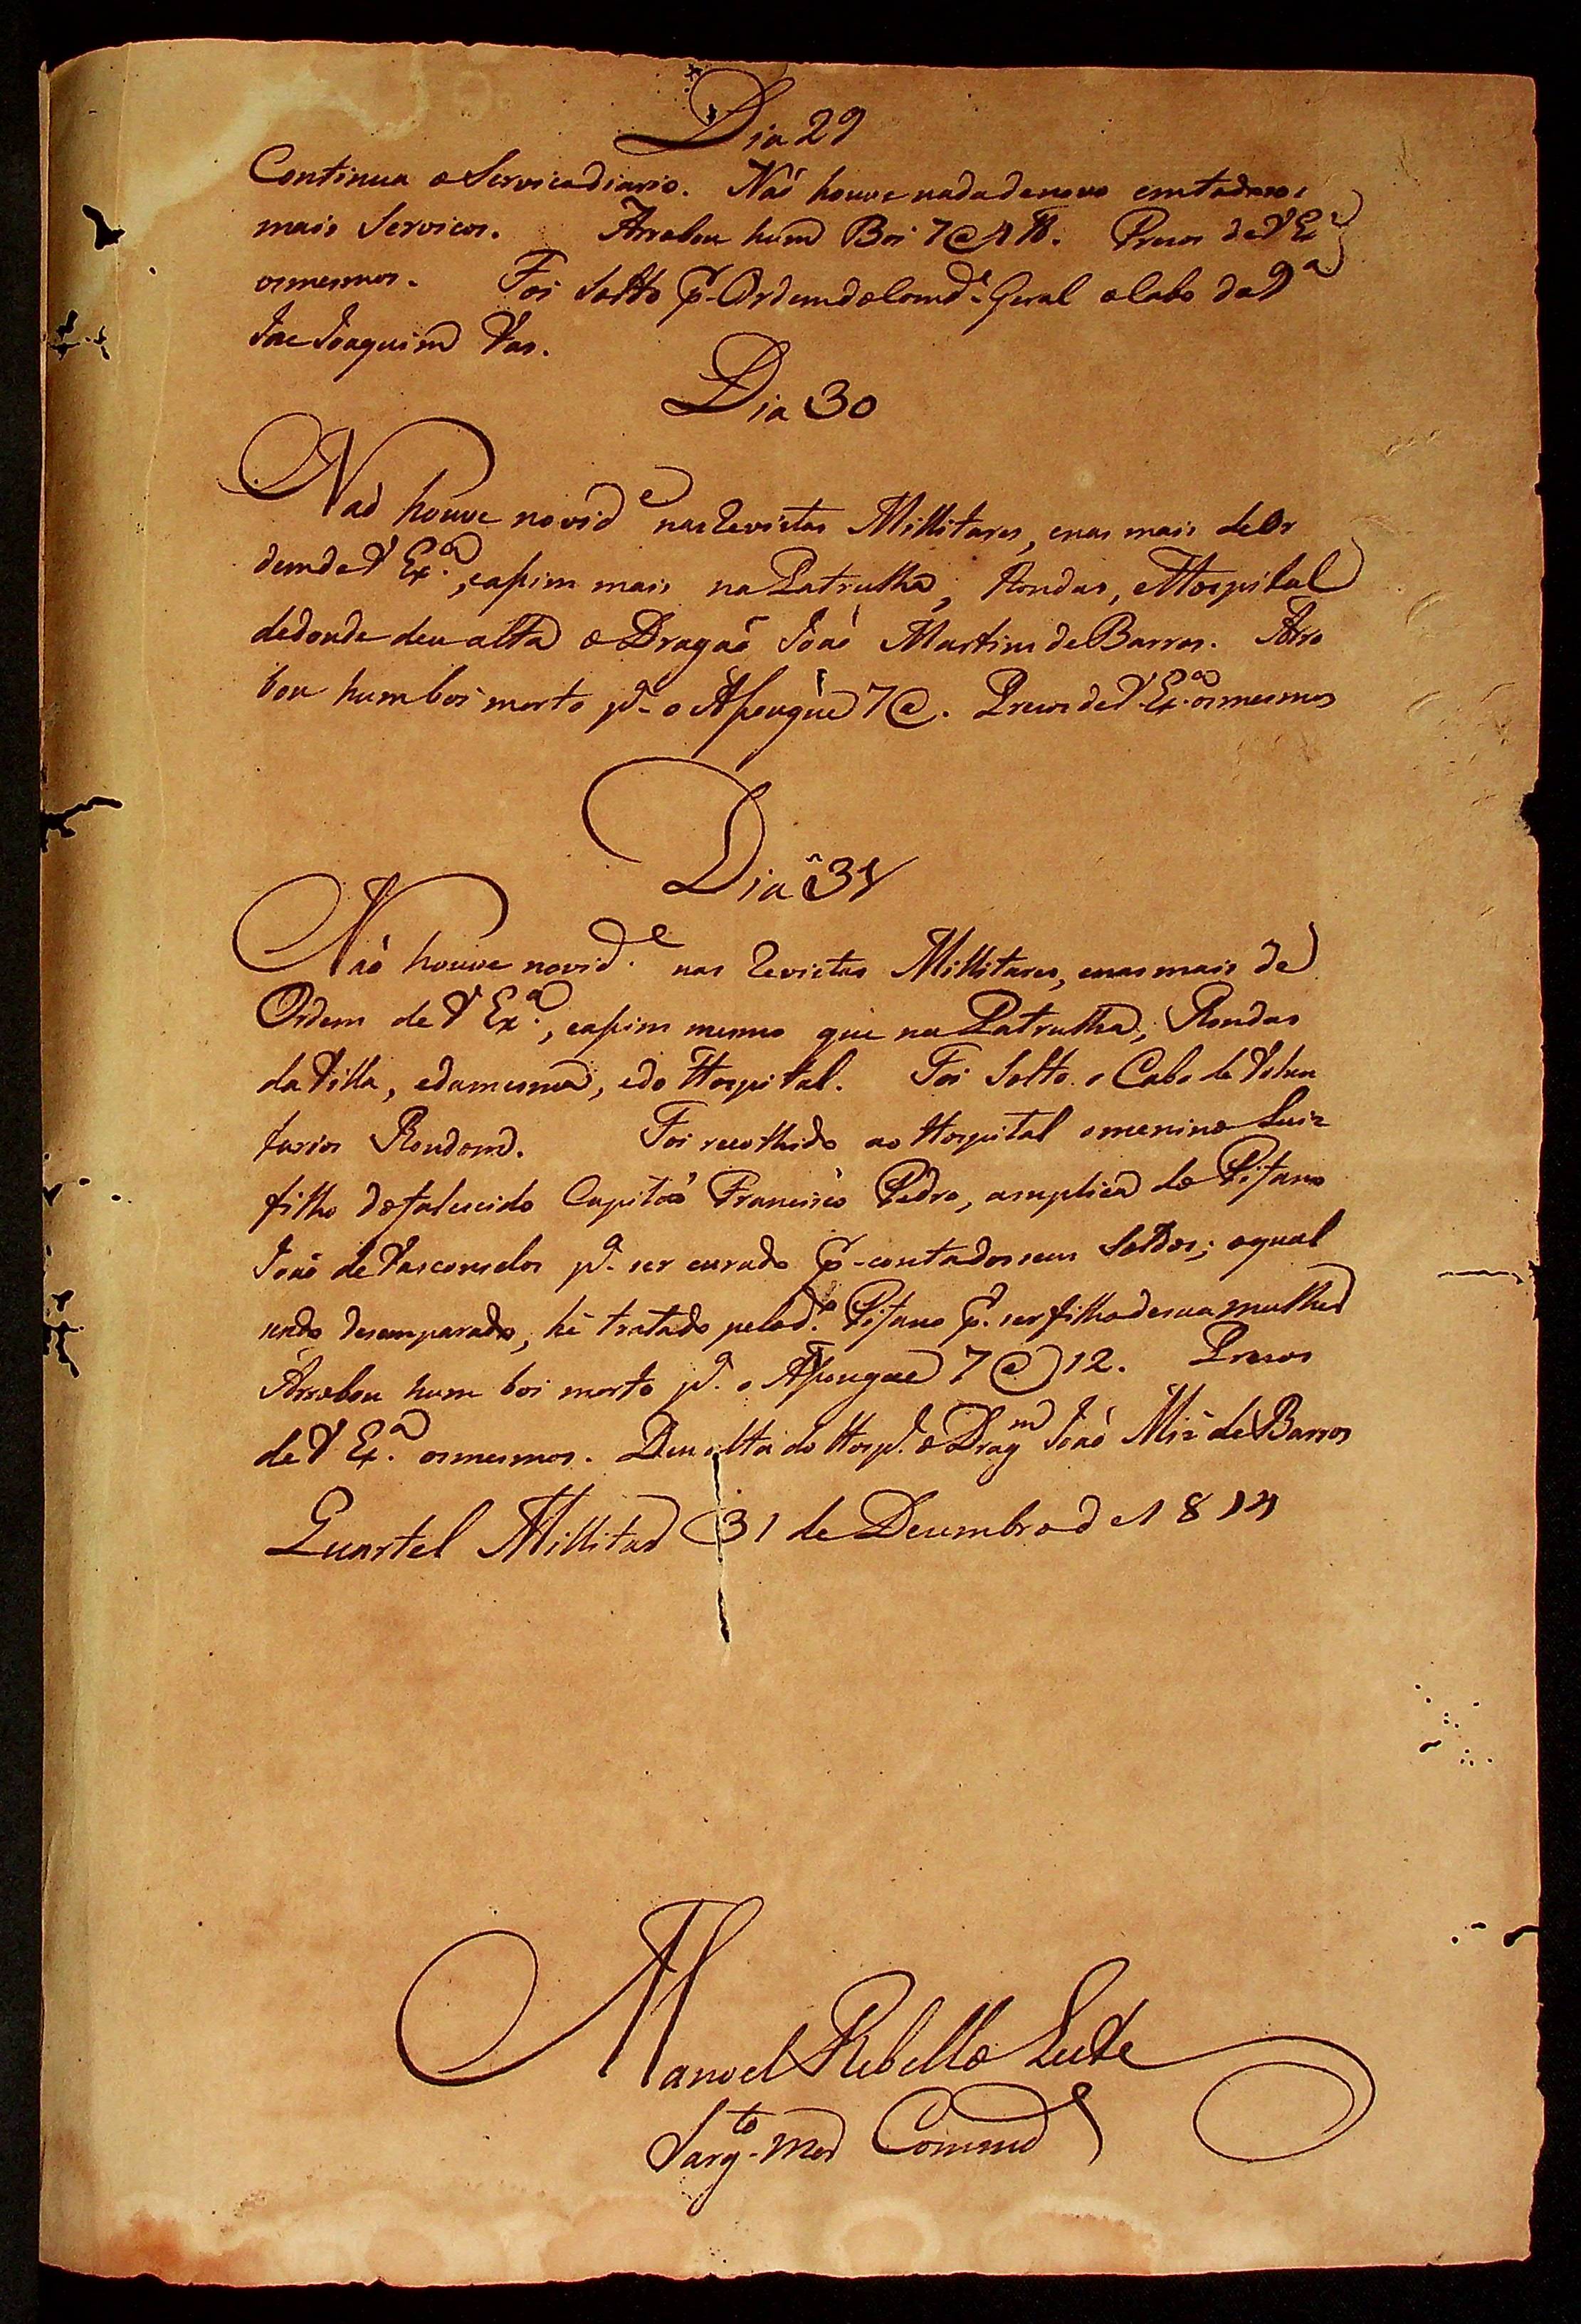 Dia 29
Continua o Servico diario. Naõ houve nada de novo em todos os
mais Servicos. Arrobou hum Boi 7@4 lb. Prezos de V Exª
os mesmos. Foi Solto p. Ordem do Comdᵉ Geral o Cabo da 9ª
Joaquim Vas.
Dia 30
Naõ houve novidᵉ nas Revistas Millitares, e nas mais de Or
dem de V Exª, e assim mais na Patrulha, Rondas, e Hospital
de donde deu alta o Dragaõ Joaõ Martins de Barros. Arro
bou hum boi morto pª o Assougue 7@. Prezos de V. Exª os mesmos
Dia 31
Naõ houve novidᵉ nas Revistas Millitares, e nas mais de
Ordem de V Exª, e assim mesmo que na Patrulha, Rondas
da Villa, e da mesma, e do Hospital. Foi Solto o Cabo de Volun
tarios Rondom. Foi recolhido ao Hospital o menino Luiz
filho do falecido Capitaõ Francisco Pedro, a suplica do Pifano
Joaõ de Vasconcelos pª ser curado p. conta dos seus Soldos; o qual
sendo desemparado, hé tratado pelo dº Pifano pr. ser filho de sua mulher
Arrobou hum boi morto pª o Assougue 7@12. Prezos
de V Exª os mesmos. Deu alta do Hospl. o Dragᵐ Joaõ Miz de Barros
Quartel Millitar 31 de Dezembro de 1814
Manoel Rebello Leite
Sargᵗᵒ Mor Commdᵉ